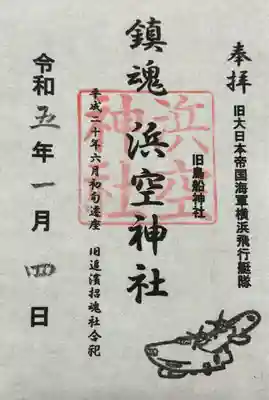 奉拝
旧大日本帝国海軍横浜飛行艇隊
旧鳥船神社
鎮魂 浜空神社
浜空神社
平成二十年六月初旬遷座 旧追濱招魂社合祀
令和五年一月四日